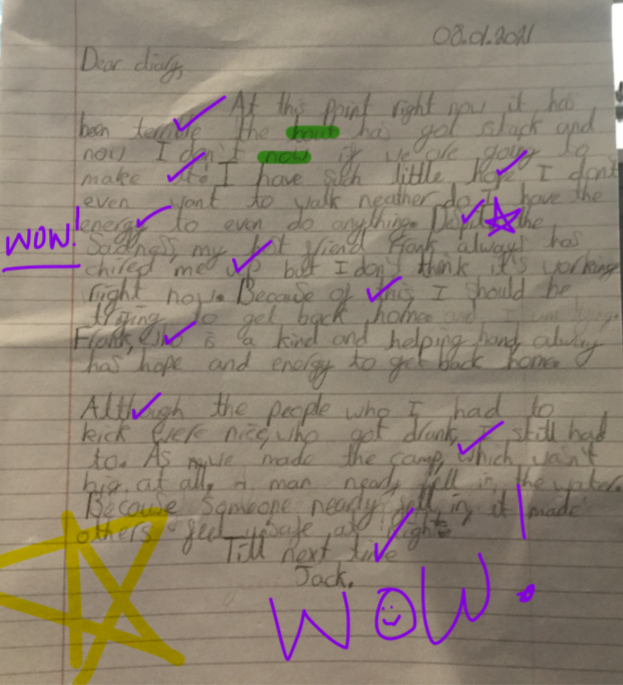 08.01.2021
Dear diary,
At this point right now it has
been terrible the has got stuck and
now I don't now if we are going to
make it! I have such little hope I don't
even want to walk neather do I have the
WOW! energy to even do anything. Despite the
Sadness, my best friend Frank always has
chired me up but I don't think it's working
right now. Because of this, I should be
trying to get back home and I
Frank, who is a kind and helping hand, always
has hope and energy to get back home.
Although the people who I had to
kick were nice, who got drunk, I still had
to. As we made the camp, which wasn't
big at all, a man nearly fell in the water.
Because someone nearly fell in, it made
others feel unsafe at night.
Till next time
Jack.
WOW.